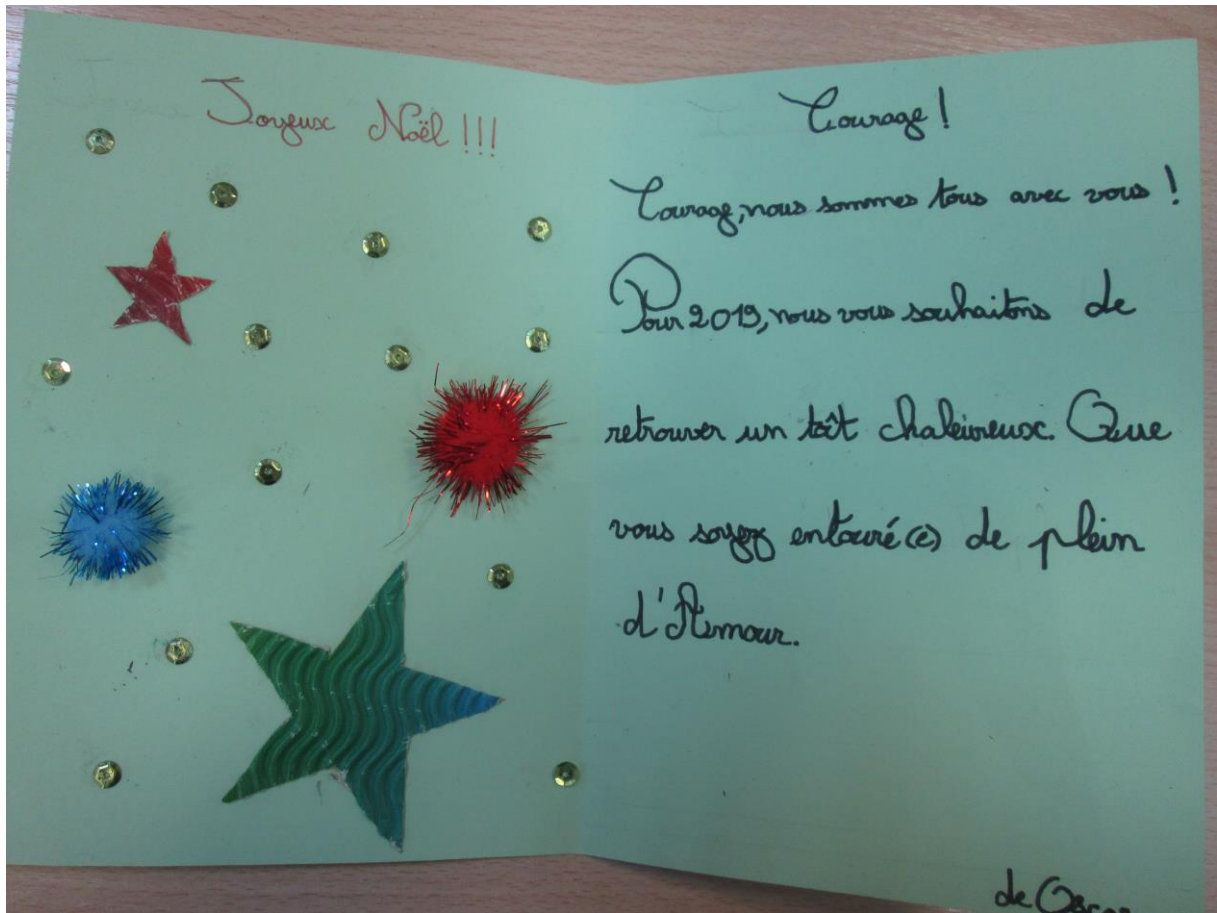 Joyeux Noël !!!
Courage !
Courage, nous sommes tous avec vous !
Pour 2019, nous vous souhaitons de
retrouver un toît chaleureux. Que
vous soyez entouré(e) de plein
d'Amour.
de Oscar